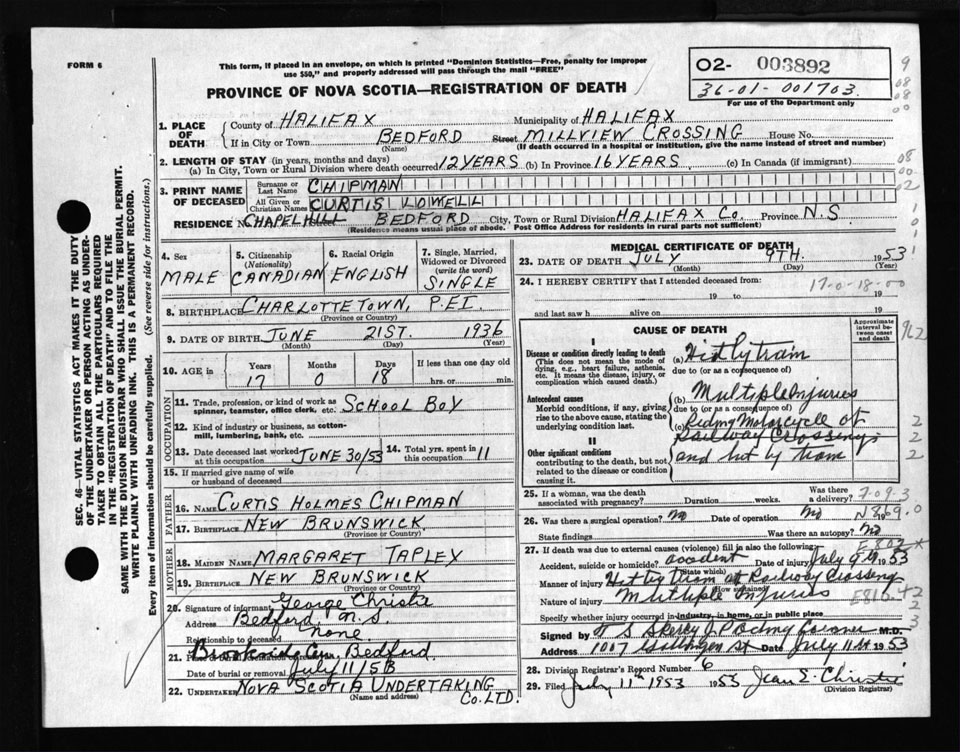 FORM 6
This form, if placed in an envelope, on which is printed "Dominion Statistics—Free, penalty for improper
use $50," and properly addressed will pass through the mail "FREE"
PROVINCE OF NOVA SCOTIA—REGISTRATION OF DEATH
02- 003892
36-01-001703
For use of the Department only
1. PLACE OF DEATH
County of HALIFAX Municipality of HALIFAX
If in City or Town BEDFORD Street MILLVIEW CROSSING House No.
(Name) (If death occurred in a hospital or institution, give the name instead of street and number)
2. LENGTH OF STAY (in years, months and days)
(a) In City, Town or Rural Division where death occurred 12 YEARS (b) In Province 16 YEARS (c) In Canada (if immigrant)
3. PRINT NAME OF DECEASED
Surname or Last Name CHIPMAN
All Given or Christian Names CURTIS LOWELL
RESIDENCE No. CHAPEL HILL Street BEDFORD City, Town or Rural Division HALIFAX Co. Province N.S.
(Residence means usual place of abode. Post Office Address for residents in rural parts not sufficient)
4. Sex MALE
5. Citizenship (Nationality) CANADIAN
6. Racial Origin ENGLISH
7. Single, Married, Widowed or Divorced (write the word) SINGLE
8. BIRTHPLACE CHARLOTTETOWN, P.EI.
(Province or Country)
9. DATE OF BIRTH JUNE 21ST. 1936
(Month) (Day) (Year)
10. AGE in Years 17 Months 0 Days 18 If less than one day
hrs. or min.
OCCUPATION
11. Trade, profession, or kind of work as spinner, teamster, office clerk, etc. SCHOOL BOY
12. Kind of industry or business, as cotton-mill, lumbering, bank, etc.
13. Date deceased last worked at this occupation JUNE 30/53
14. Total yrs. spent in this occupation 11
15. If married give name of wife or husband of deceased
FATHER
16. NAME CURTIS HOLMES CHIPMAN
17. BIRTHPLACE NEW BRUNSWICK
(Province or Country)
MOTHER
18. MAIDEN NAME MARGARET TAPLEY
19. BIRTHPLACE NEW BRUNSWICK
(Province or Country)
20. Signature of informant George Christie
Address Bedford, N.S.
Relationship to deceased None
21. Brookside Cem. Bedford.
Date of burial or removal July 11/53
22. UNDERTAKER NOVA SCOTIA UNDERTAKING
(Name and address) Co. LTD.
MEDICAL CERTIFICATE OF DEATH
23. DATE OF DEATH JULY 9TH. 1953
(Month) (Day) (Year)
24. I HEREBY CERTIFY that I attended deceased from:
17-0-18-00
19 to 19
and last saw h alive on 19
CAUSE OF DEATH
Approximate interval between onset and death
I
Disease or condition directly leading to death
(This does not mean the mode of dying, e.g., heart failure, asthenia, etc. It means the disease, injury, or complication which caused death.)
(a) Hit by train
due to (or as a consequence of)
Antecedent causes
Morbid conditions, if any, giving rise to the above cause, stating the underlying condition last.
(b) Multiple Injuries
due to (or as a consequence of)
(c) Riding Motorcycle at
Railway Crossing
and hit by train
II
Other significant conditions
contributing to the death, but not related to the disease or condition causing it.
25. If a woman, was the death associated with pregnancy? Duration weeks. Was there a delivery?
26. Was there a surgical operation? No Date of operation No
N869.0
State findings Was there an autopsy? No
27. If death was due to external causes (violence) fill in also the following:
E802
Accident, suicide or homicide? accident Date of injury July 9th 1953
(State which)
Manner of injury Hit by train at Railway Crossing
(How sustained)
Nature of injury Multiple injuries
Specify whether injury occurred in industry, in home, or in public place
Signed by Coroner M.D.
Address 1007 Gottingen St Date July 11th 1953
28. Division Registrar's Record Number 6
29. Filed July 11th 1953 1953 Jean E. Christie
(Division Registrar)
SEC. 46—VITAL STATISTICS ACT MAKES IT THE DUTY
OF THE UNDERTAKER OR PERSON ACTING AS UNDER-
TAKER TO OBTAIN ALL THE PARTICULARS REQUIRED
IN THE "REGISTRATION OF DEATH" AND TO FILE THE
SAME WITH THE DIVISION REGISTRAR WHO SHALL ISSUE THE BURIAL PERMIT.
WRITE PLAINLY WITH UNFADING INK. THIS IS A PERMANENT RECORD.
Every item of information should be carefully supplied. (See reverse side for instructions.)